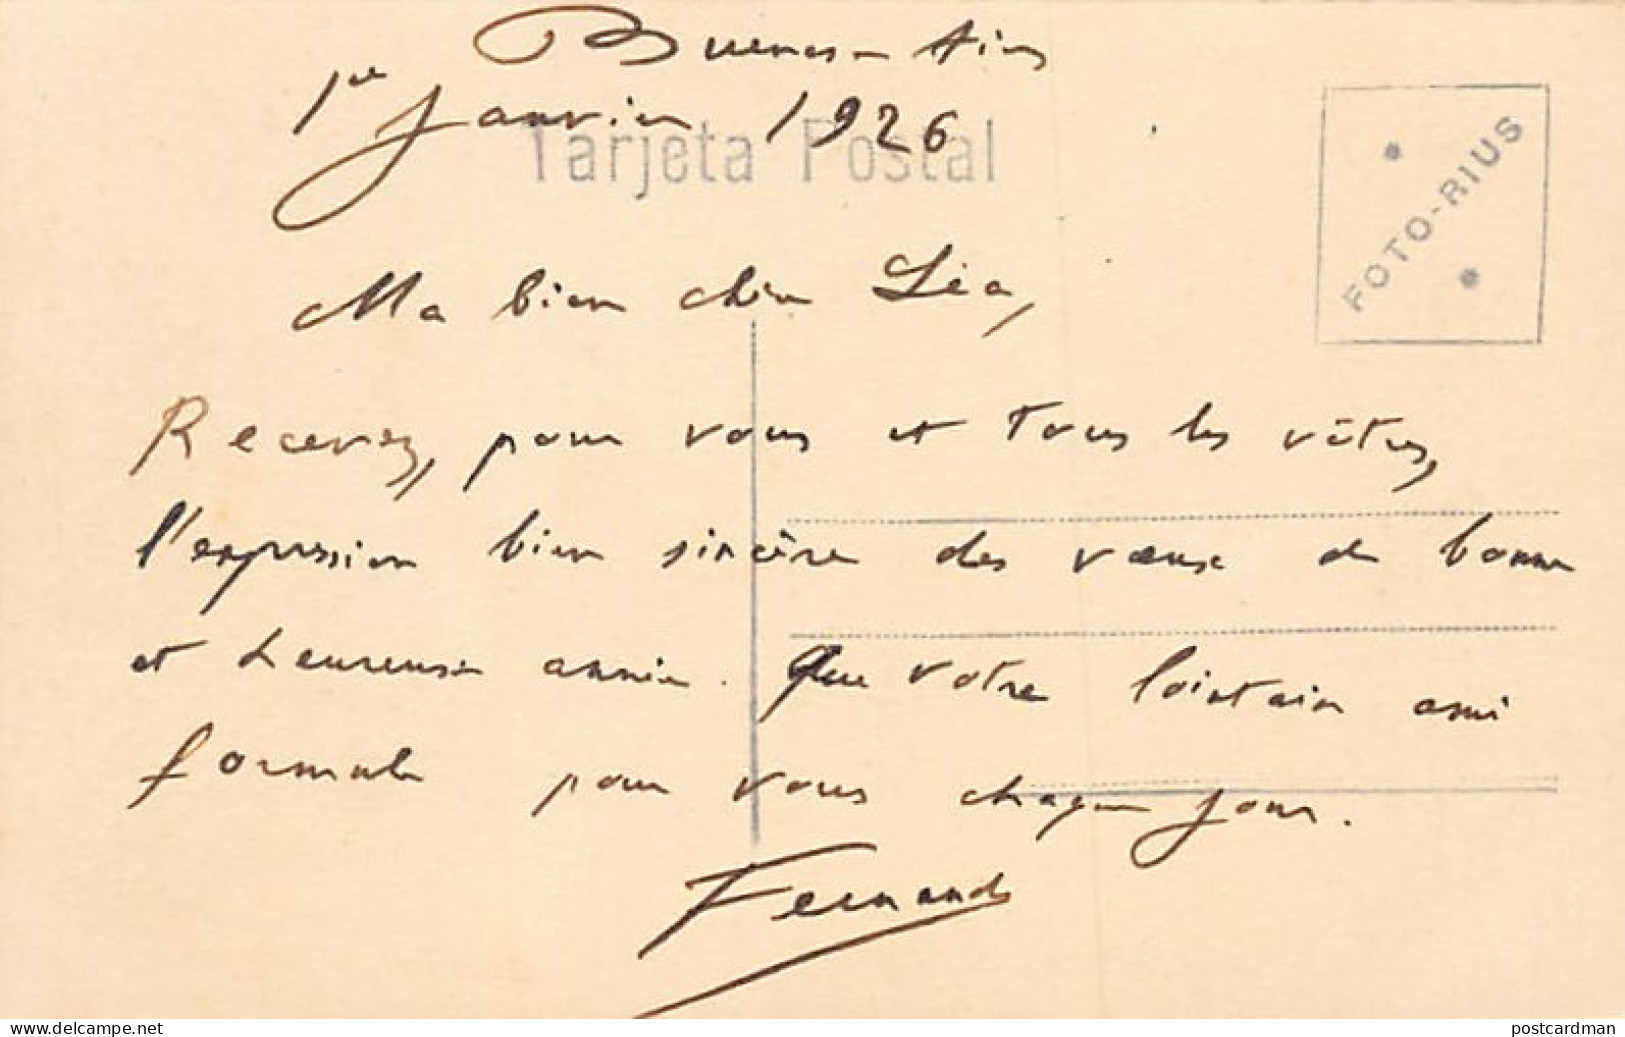 Buenos-Aires
1er Janvier 1926
Tarjeta Postal
FOTO-RIUS
Ma bien chère Léa,
Recevez, pour vous et tous les vôtres,
l'expression bien sincère des vœux de bonne
et heureuse année. Que votre lointain ami
formule pour vous chaque jour.
Fernand
www.delcampe.net
postcardman